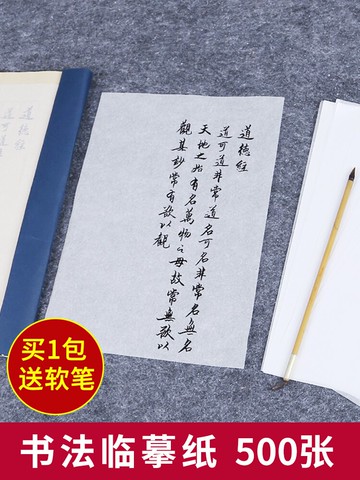 道德经
道可道非常道名可名非常名無名
天地之始有名萬物之母故常無欲以
觀其妙常有欲以觀
买1包
送软笔
书法临摹纸 500张